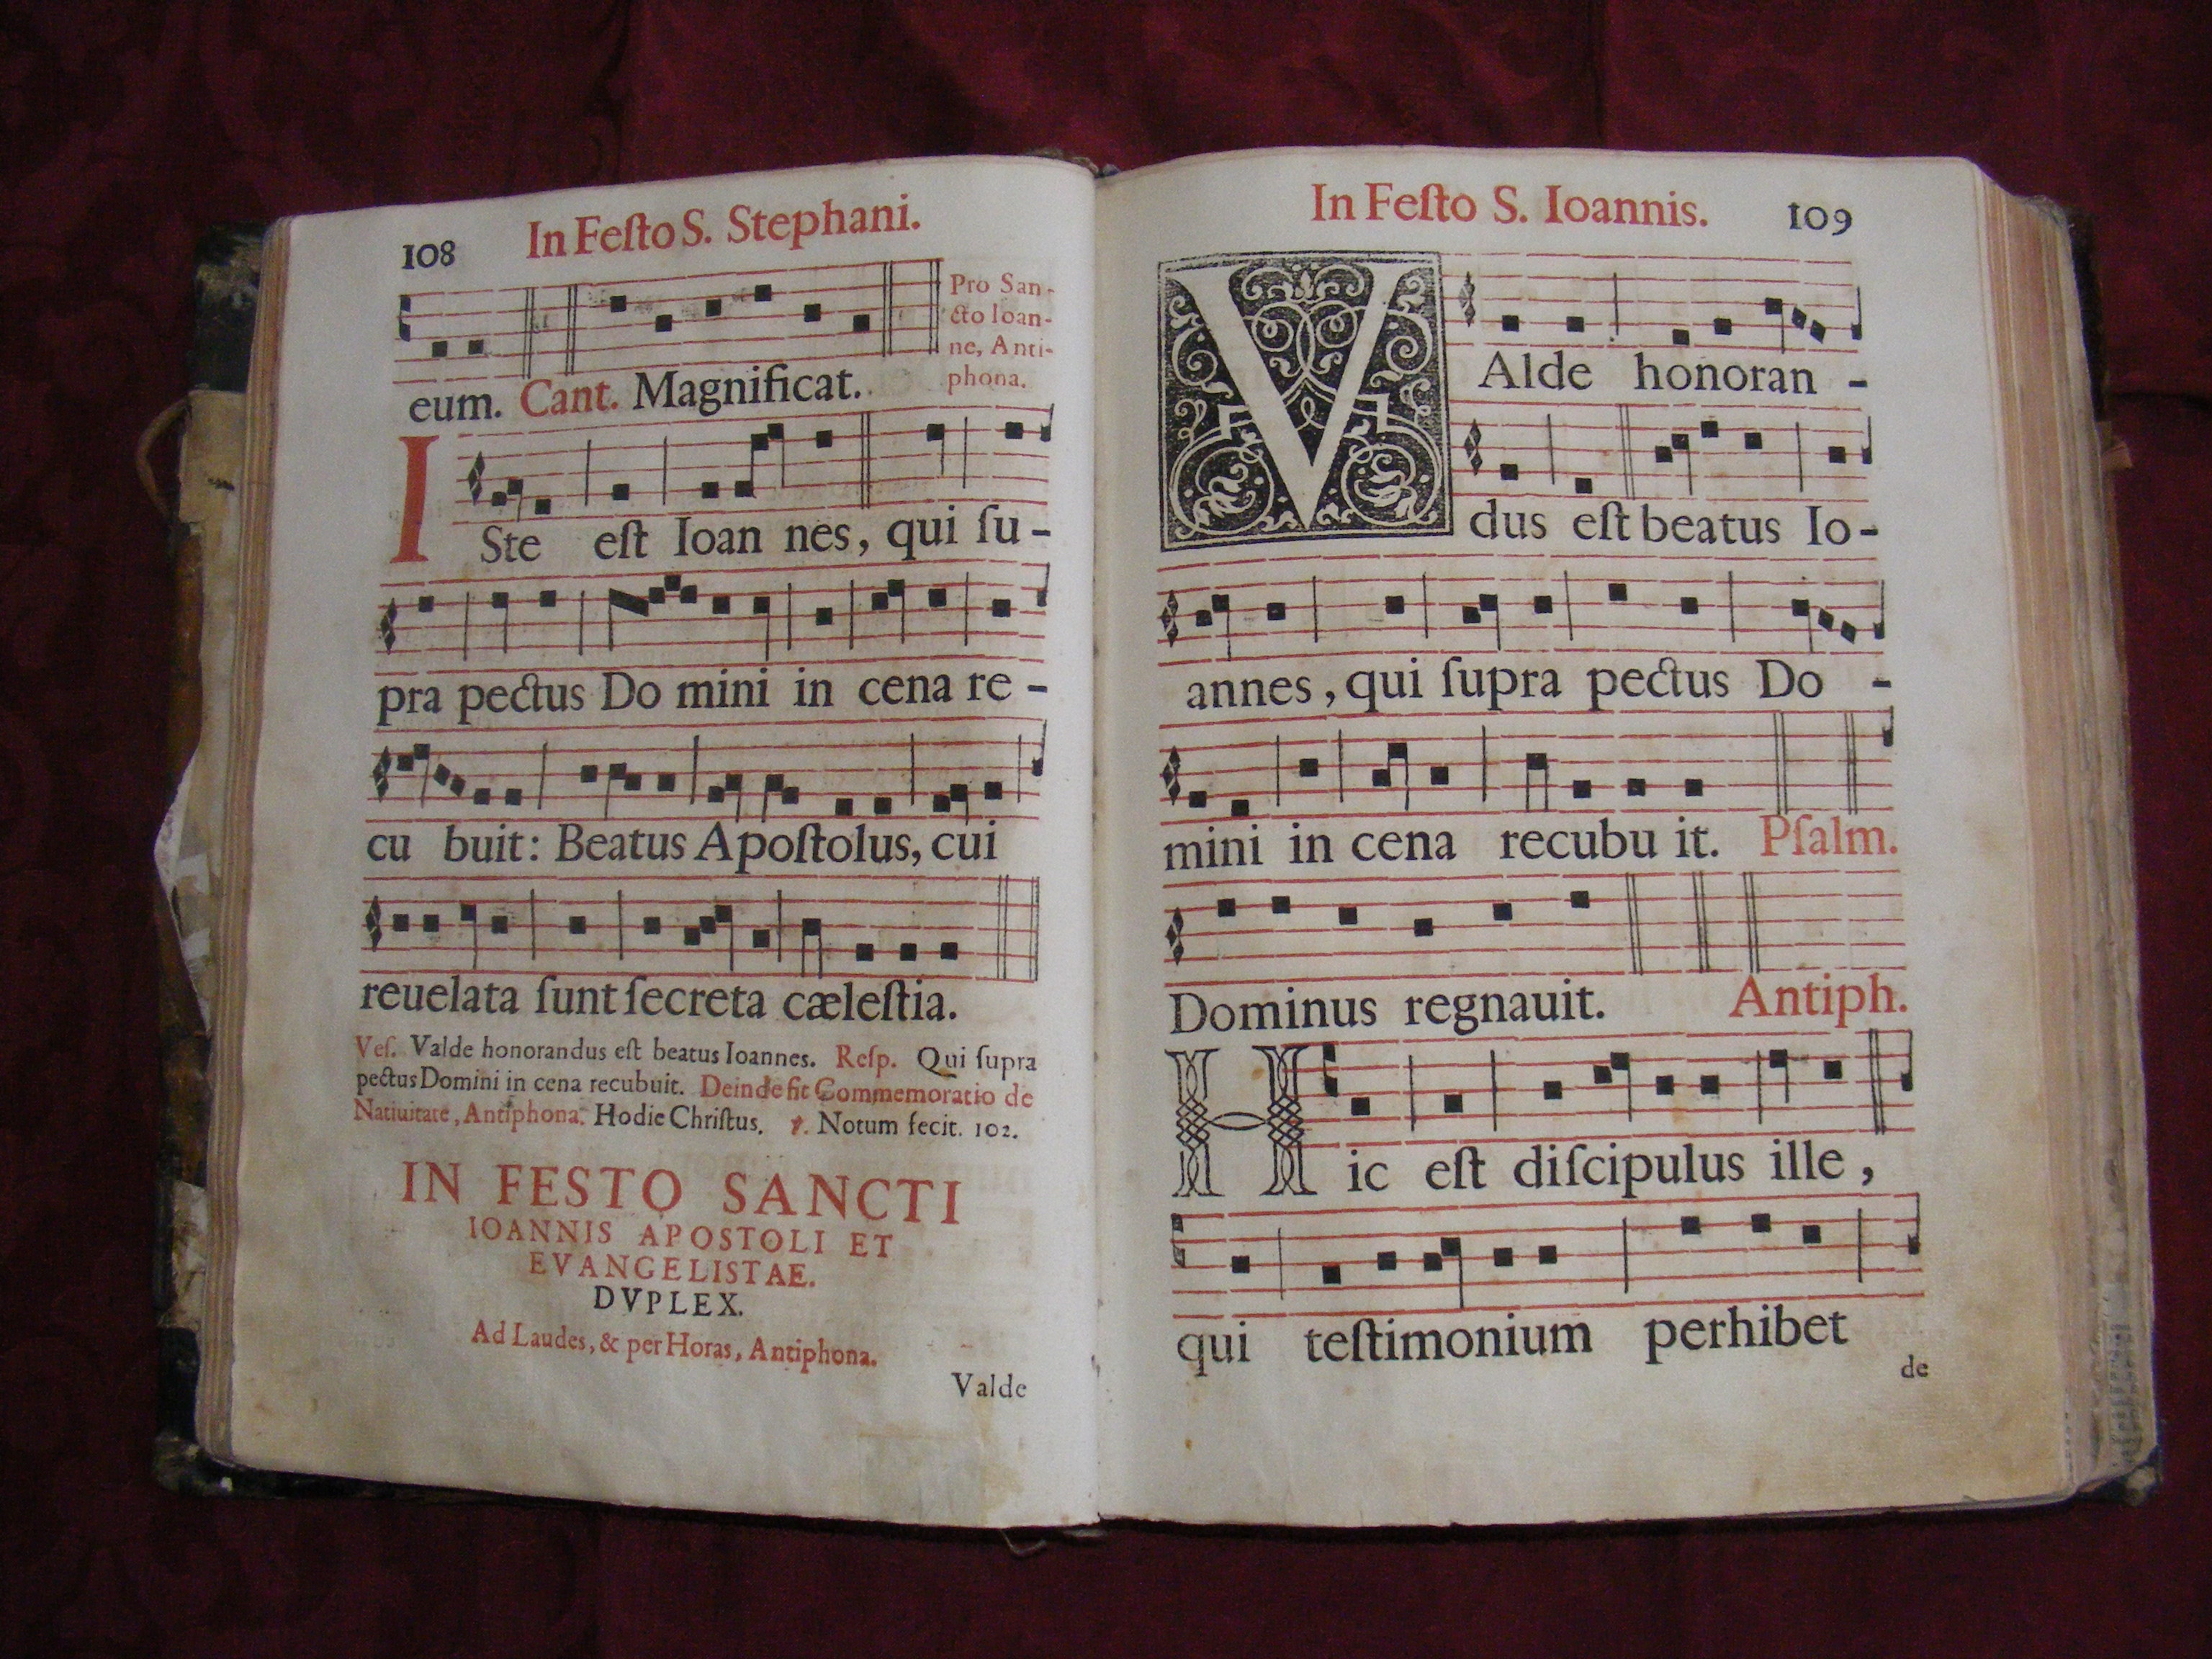 108 In Feſto S. Stephani.
Pro San-
cto Ioan-
ne, Anti-
phona.
eum. Cant. Magnificat.
ISte eſt Ioan nes, qui ſu-
pra pectus Do mini in cena re-
cu buit: Beatus Apoſtolus, cui
reuelata ſunt ſecreta cæleſtia.
Veſ. Valde honorandus eſt beatus Ioannes. Reſp. Qui ſupra
pectus Domini in cena recubuit. Deinde fit Commemoratio de
Natiuitate, Antiphona. Hodie Chriſtus. ℣. Notum fecit. 102.
IN FESTO SANCTI
IOANNIS APOSTOLI ET
EVANGELISTAE.
DVPLEX.
Ad Laudes, & per Horas, Antiphona.
Valde
In Feſto S. Ioannis. 109
VAlde honoran-
dus eſt beatus Io-
annes, qui ſupra pectus Do-
mini in cena recubu it. Pſalm.
Dominus regnauit. Antiph.
Hic eſt diſcipulus ille,
qui teſtimonium perhibet
de